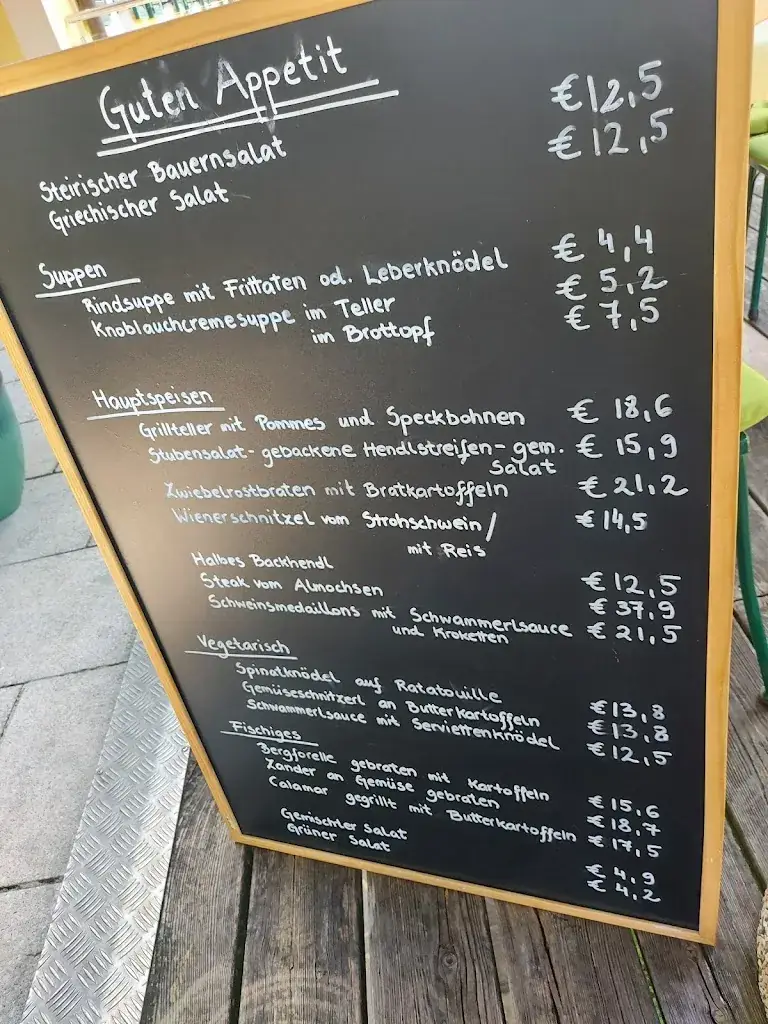 Guten Appetit
Steirischer Bauernsalat € 12,5
Griechischer Salat € 12,5
Suppen
Rindsuppe mit Frittaten od. Leberknödel € 4,4
Knoblauchcremesuppe im Teller € 5,2
im Brottopf € 7,5
Hauptspeisen
Grillteller mit Pommes und Speckbohnen € 18,6
Stubensalat - gebackene Hendlstreifen - gem. € 15,9
Salat
Zwiebelrostbraten mit Bratkartoffeln € 21,2
Wienerschnitzel vom Strohschwein/ € 14,5
mit Reis
Halbes Backhendl € 12,5
Steak vom Almochsen € 37,9
Schweinsmedaillons mit Schwammerlsauce € 21,5
und Kroketten
Vegetarisch
Spinatknödel auf Ratatouille € 13,8
Gemüseschnitzerl an Butterkartoffeln € 13,8
Schwammerlsauce mit Serviettenknödel € 12,5
Fischiges
Bergforelle gebraten mit Kartoffeln € 15,6
Zander an Gemüse gebraten € 18,7
Calamar gegrillt mit Butterkartoffeln € 17,5
Gemischter Salat € 4,9
Grüner Salat € 4,2